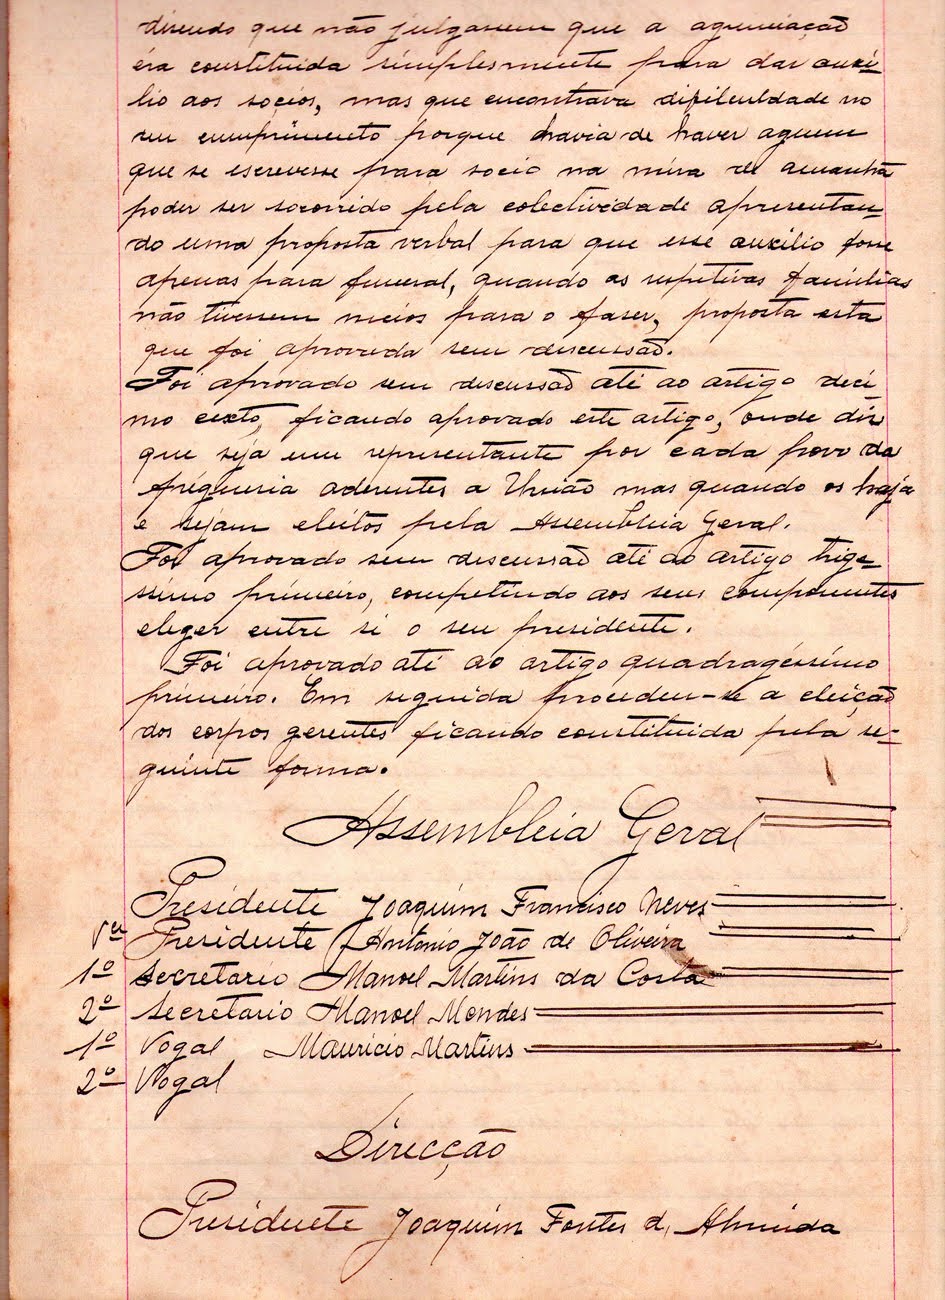 dizendo que não julgassem que a agremiação
éra constituida simplesmente para dar auxi-
lio aos socios, mas que encontrava dificuldade no
seu cumprimento porque havia de haver aguem
que se escrevesse para socio na mira de amanhã
poder ser socorrido pela colectividade apresentan-
do uma proposta verbal para que esse auxilio fosse
apenas para funeral, quando as respetivas familias
não tivessem meios para o faser, proposta esta
que foi aprovada sem discussão.
Foi aprovado sem discussão até ao artigo deci
mo cexto, ficando aprovado este artigo, onde diz
que seja um representante por cada povo da
freguesia aderentes a União mas quando os haja
e sejam eleitos pela Assembleia Geral.
Foi aprovado sem discussão até ao artigo trige-
ssimo primeiro, competindo aos seus componentes
eleger entre si o seu presidente.
Foi aprovado até ao artigo quadragéssimo
primeiro. Em seguida procedeu-se a eleição
dos corpos gerentes ficando constituida pela se-
guinte forma.
Assembleia Geral
Presidente Joaquim Francisco Neves
Presidente António João de Oliveira
1º Secretario Manoel Martins da Costa
2º Secretario Manoel Mendes
1º Vogal Mauricio Martins
2º Vogal
Direcção
Presidente Joaquim Fontes d, Almeida